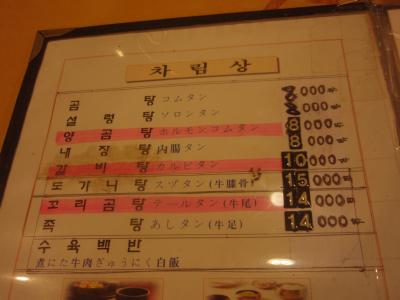 차림상
곰탕 コムタン 000
설렁탕 ソロンタン 000
양곰탕 ホルモンコムタン 8000
내장탕 内腸タン 8000
갈비탕 カルビタン 10000
도가니탕 スヅタン(牛膝骨) 15000
꼬리곰탕 テールタン(牛尾) 14000
족탕 あしタン(牛足) 14000
수육백반
煮にた牛肉ぎゅうにく白飯